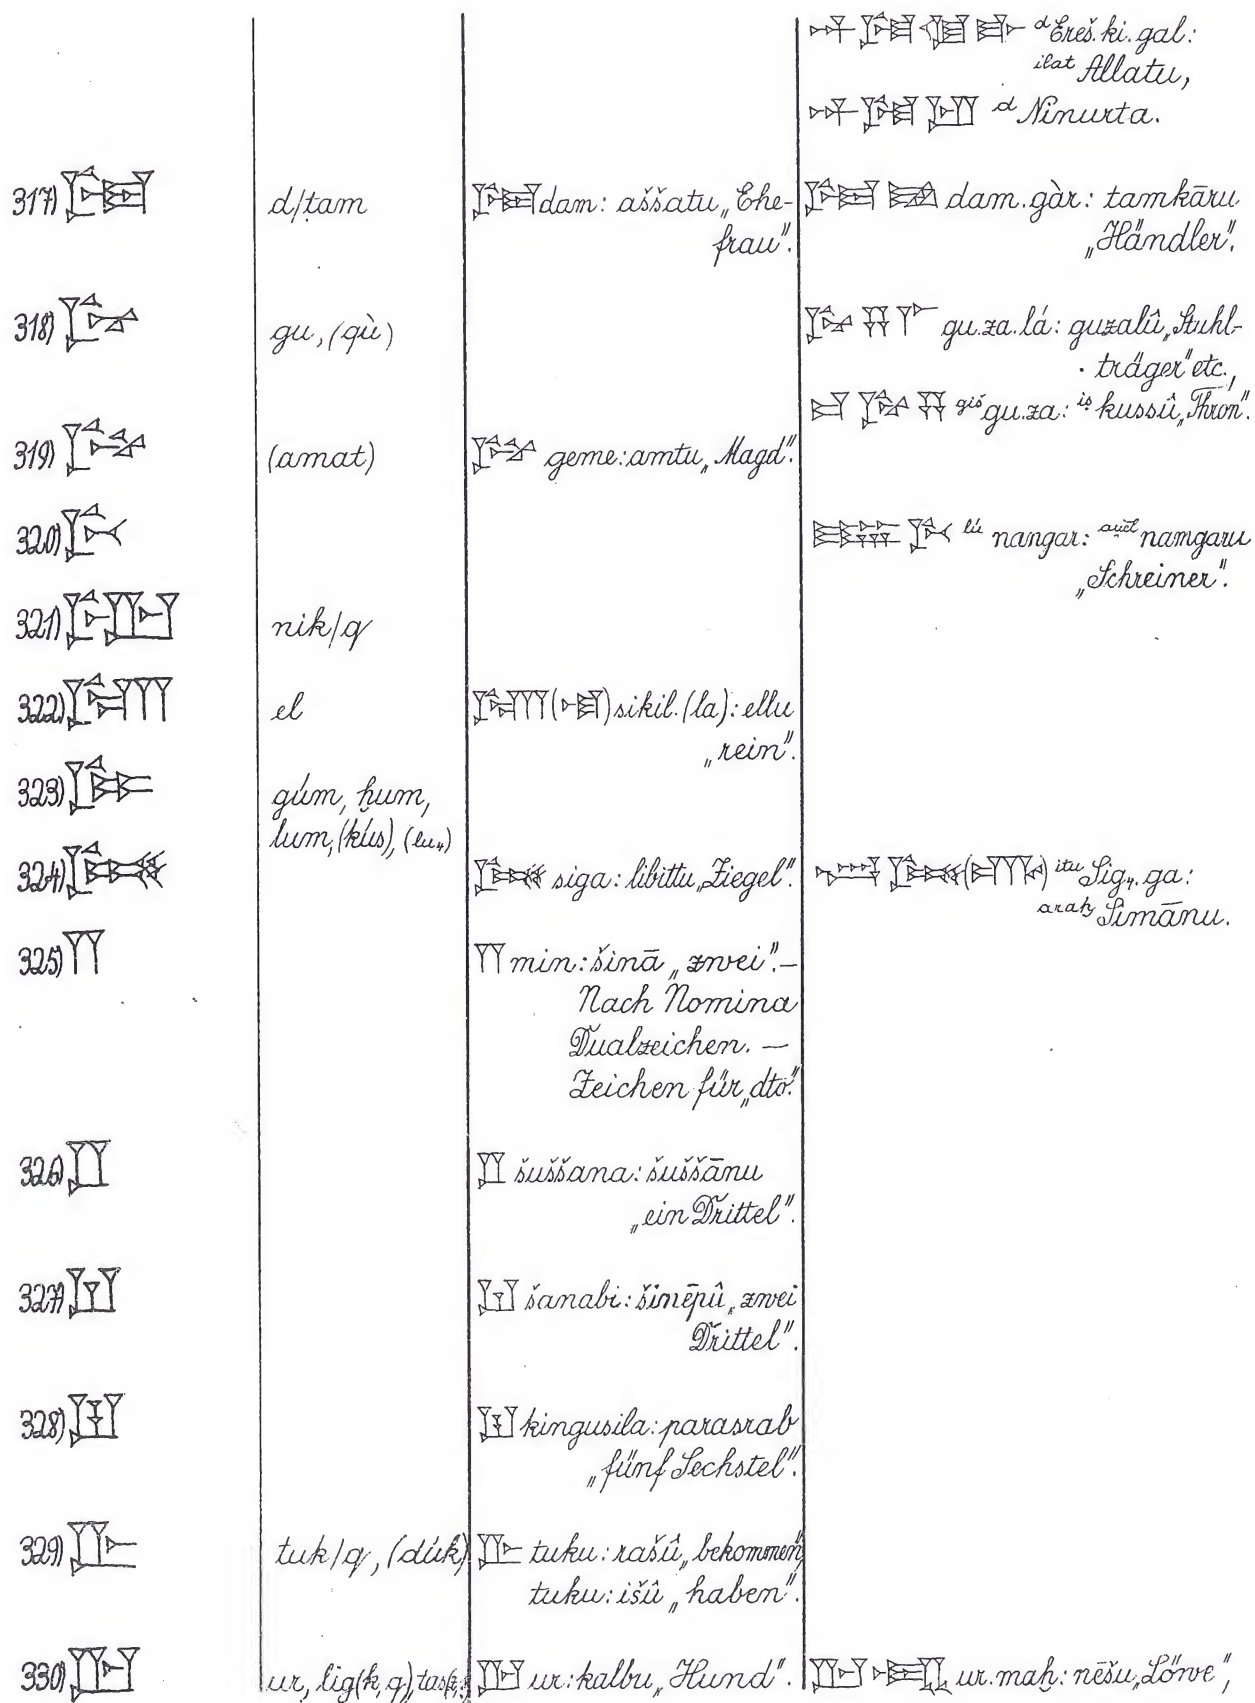 𒀭𒊩𒌆𒆠𒃲 ᵈEreš.ki.gal:
ⁱˡᵃᵗ Allatu,
𒀭𒊩𒌆𒅁 ᵈNinurta.
317) 𒁮 d/ṭam 𒁮 dam: aššatu „Ehe- 𒁮𒃼 dam.gàr: tamkāru
frau“. „Händler“.
318) 𒄖 gu, (qù) 𒄖𒍝𒇲 gu.za.lá: guzalû „Stuhl-
träger“ etc.,
𒄑𒄖𒍝 ᵍⁱˢ̌gu.za: ⁱṣ kussû „Thron“.
319) 𒊩𒆳 (amat) 𒊩𒆳 geme: amtu „Magd“.
320) 𒉄 𒇽𒉄 ˡᵘ́ nangar: ᵃu̯ēl namgaru
„Schreiner“.
321) 𒊩𒌨 nik/q
322) 𒂖 el 𒂖(𒆷) sikil.(la): ellu
„rein“.
323) 𒈝 gúm, ḫum,
lum, (kús), (lu₄)
324) 𒋞 𒋞 siga: libittu „Ziegel“. 𒌚𒋞(𒂵) ⁱᵗᵘ Sig₄.ga:
ᵃʳᵃḫ Simānu.
325) 𒈫 𒈫 min: šinā „zwei“. —
Nach Nomina
Dualzeichen. —
Zeichen für „dto“.
326) 𒑚 𒑚 šuššana: šuššānu
„ein Drittel“.
327) 𒑛 𒑛 šanabi: šinēpû „zwei
Drittel“.
328) 𒑜 𒑜 kingusila: parasrab
„fünf Sechstel“.
329) 𒌇 tuk/q, (dúk) 𒌇 tuku: rašû „bekommen“,
tuku: išû „haben“.
330) 𒌨 ur, lig(k, q), 𒌨 ur: kalbu „Hund“. 𒌨𒈤 ur.maḫ: nēšu „Löwe“,